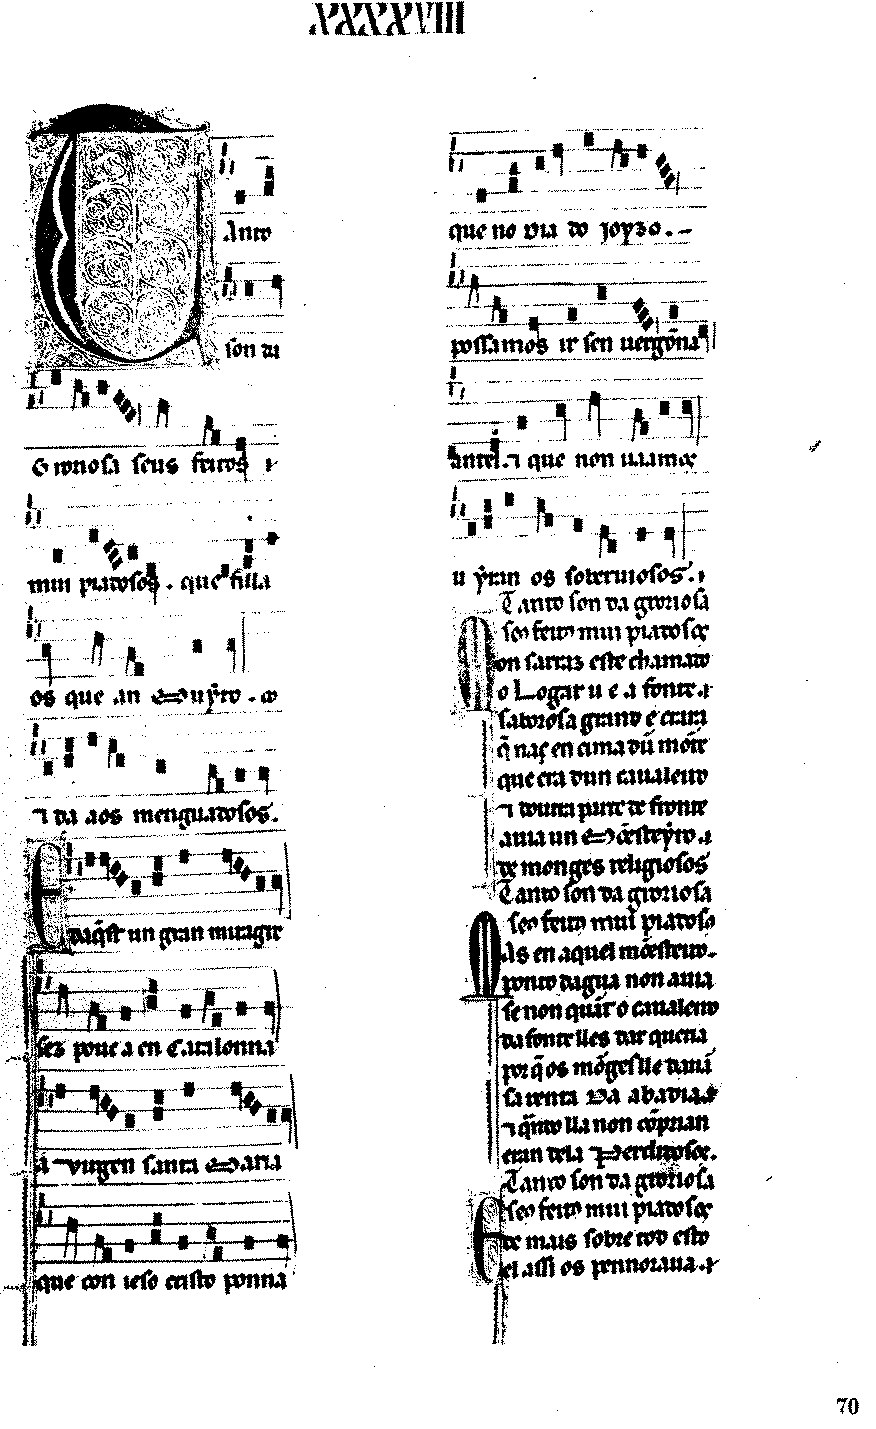 XXXXVIII
Tanto
son da
Groriosa seus feitos ⁊
mui piadosos. que filla
os que an Muyto. ⁊
⁊ da aos menguadosos.
E daq̄st un gran miragre
fez pouc a en Catalonna
a Uirgen santa Maria
que con ieso cristo ponna
que no dia do joyzo.
possamos ir sen uergōna
antel. ⁊ que non uaamos
u yran os soberuiosos. ⁊
Tanto son da groriosa
seos feitos mui piadosos
Mon sarraz este chamado
o Logar u e a fonte. ⁊
saborosa grand e crara
q̄ naç en cima dū mōte
que era dun caualeiro
⁊ doutra parte de fronte
auia un Mōesteyro. ⁊
de monges religiosos
Tanto son da groriosa
seos feitos mui piadoso
Mas en aquel mōesteiro.
ponto dagua non auia
se non quāt o caualeiro
da fonte lles dar queria
por q̄ os mōges lle dauā
sa renta Da abadia. ⁊
⁊ q̄ndo lla non cōprian
eran dela Perdudosos.
Tanto son da groriosa
seos feitos mui piadosos
E de mais sobre tod esto
el assi os pennoraua. ⁊
70